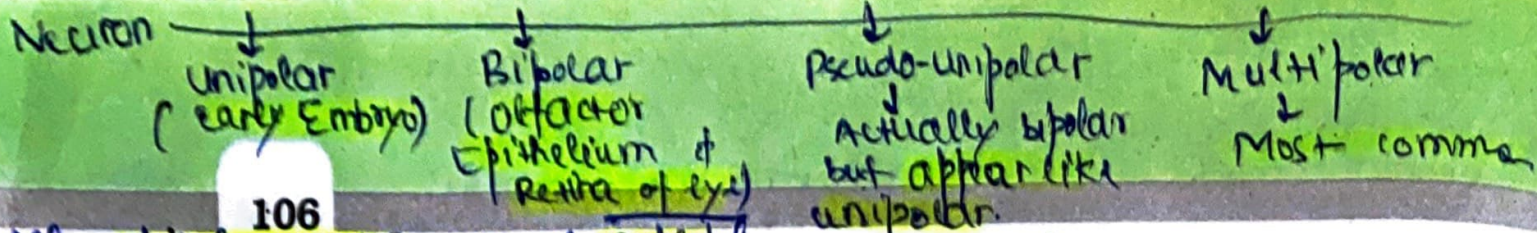 Neuron
Unipolar
(early Embryo)
Bipolar
(olfactor
Epithelium &
Retina of eye)
Pseudo-unipolar
Actually bipolar
but appear like
unipolar.
Multipolar
Most commo
106